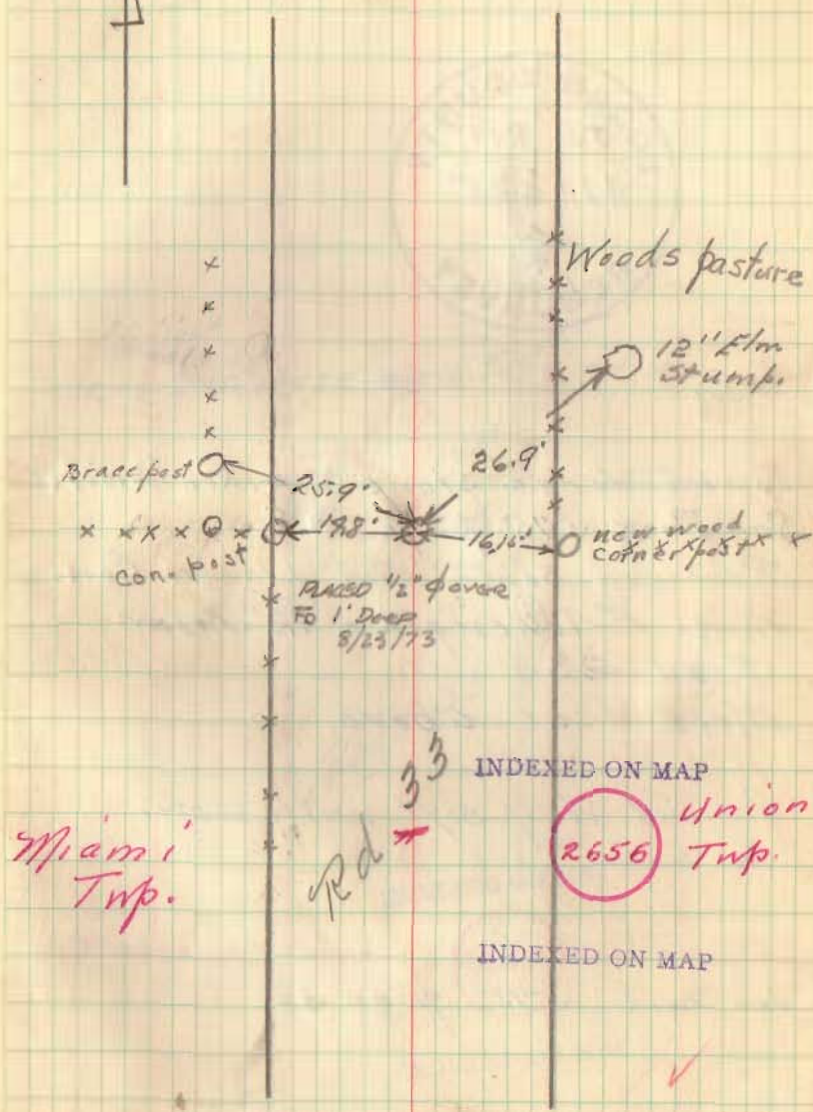 Woods pasture
12" Elm
Stump.
Brace post
25.9'
26.9'
new wood
corner post
Con. post
PLACED 1/2" ϕ over
FD 1' Deep
8/23/73
Rd 33
INDEXED ON MAP
Miami
Twp.
2656
Union
Twp.
INDEXED ON MAP